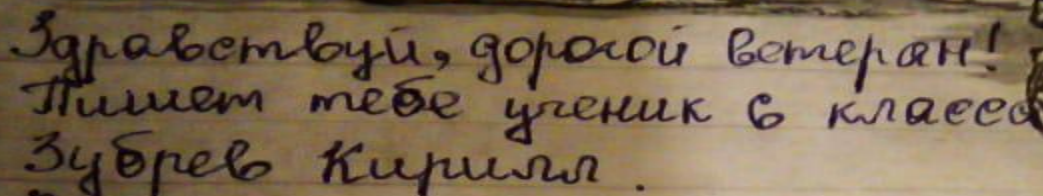 Здравствуй, дорогой ветеран!
Пишет тебе ученик 6 класса
Зубрев Кирилл.